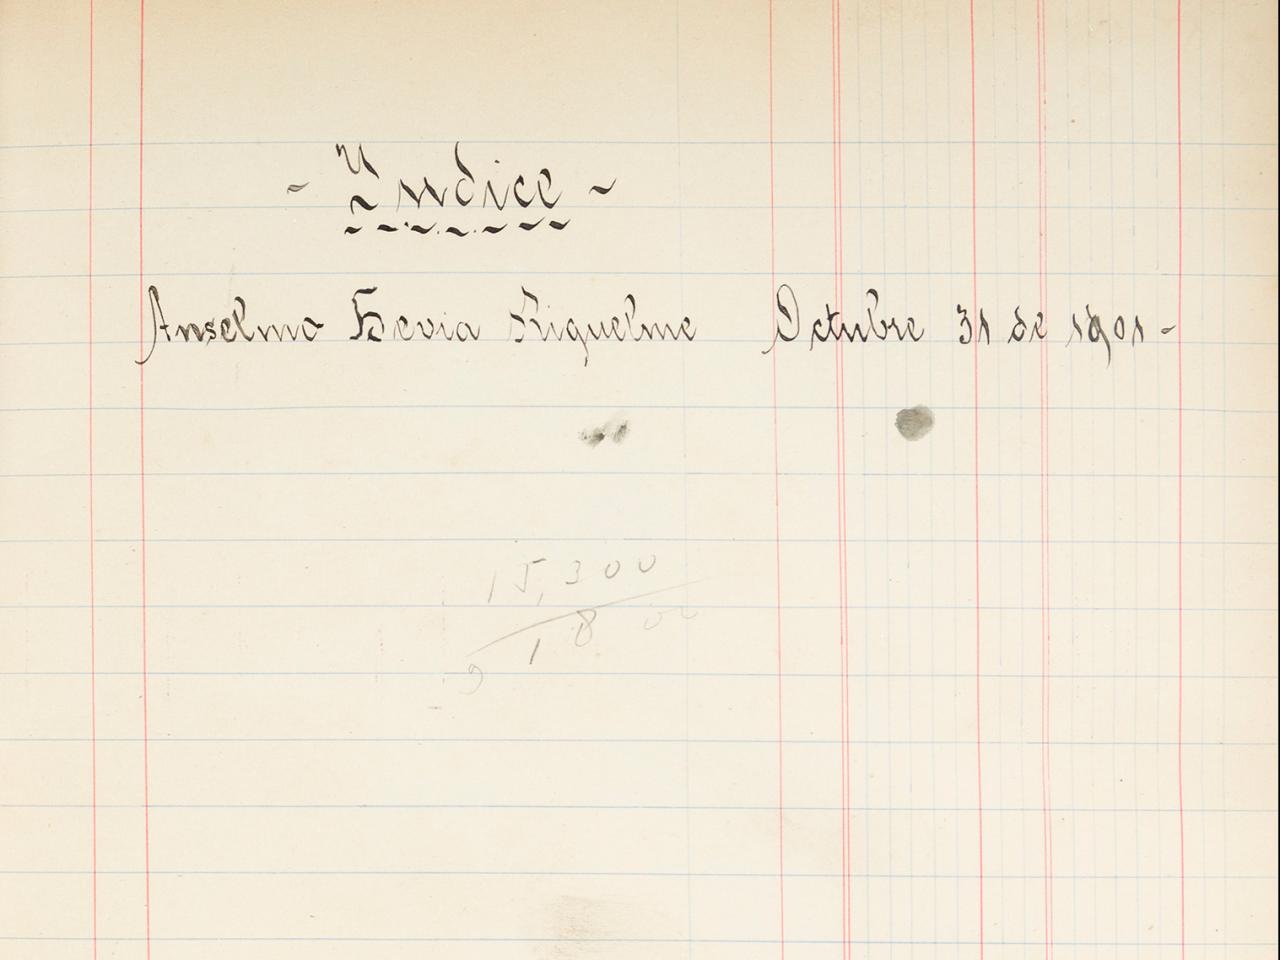 - Yndice -
Anselmo Hevia Riquelme Octubre 31 de 1901-
15,300
18 00
9